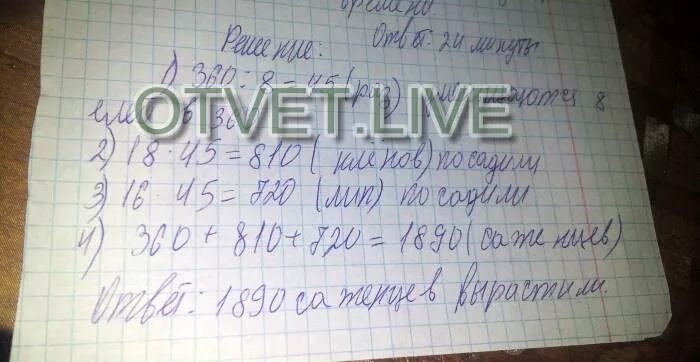 времени.
Решение: Ответ: 24 минуты.
1) 360 : 8 = 45 (раз) 8
OTVET.LIVE
елей в 36
2) 18 · 45 = 810 (кленов) посадили
3) 16 · 45 = 720 (лип) посадили
4) 360 + 810 + 720 = 1890 (саженцев)
Ответ: 1890 саженцев вырастили.